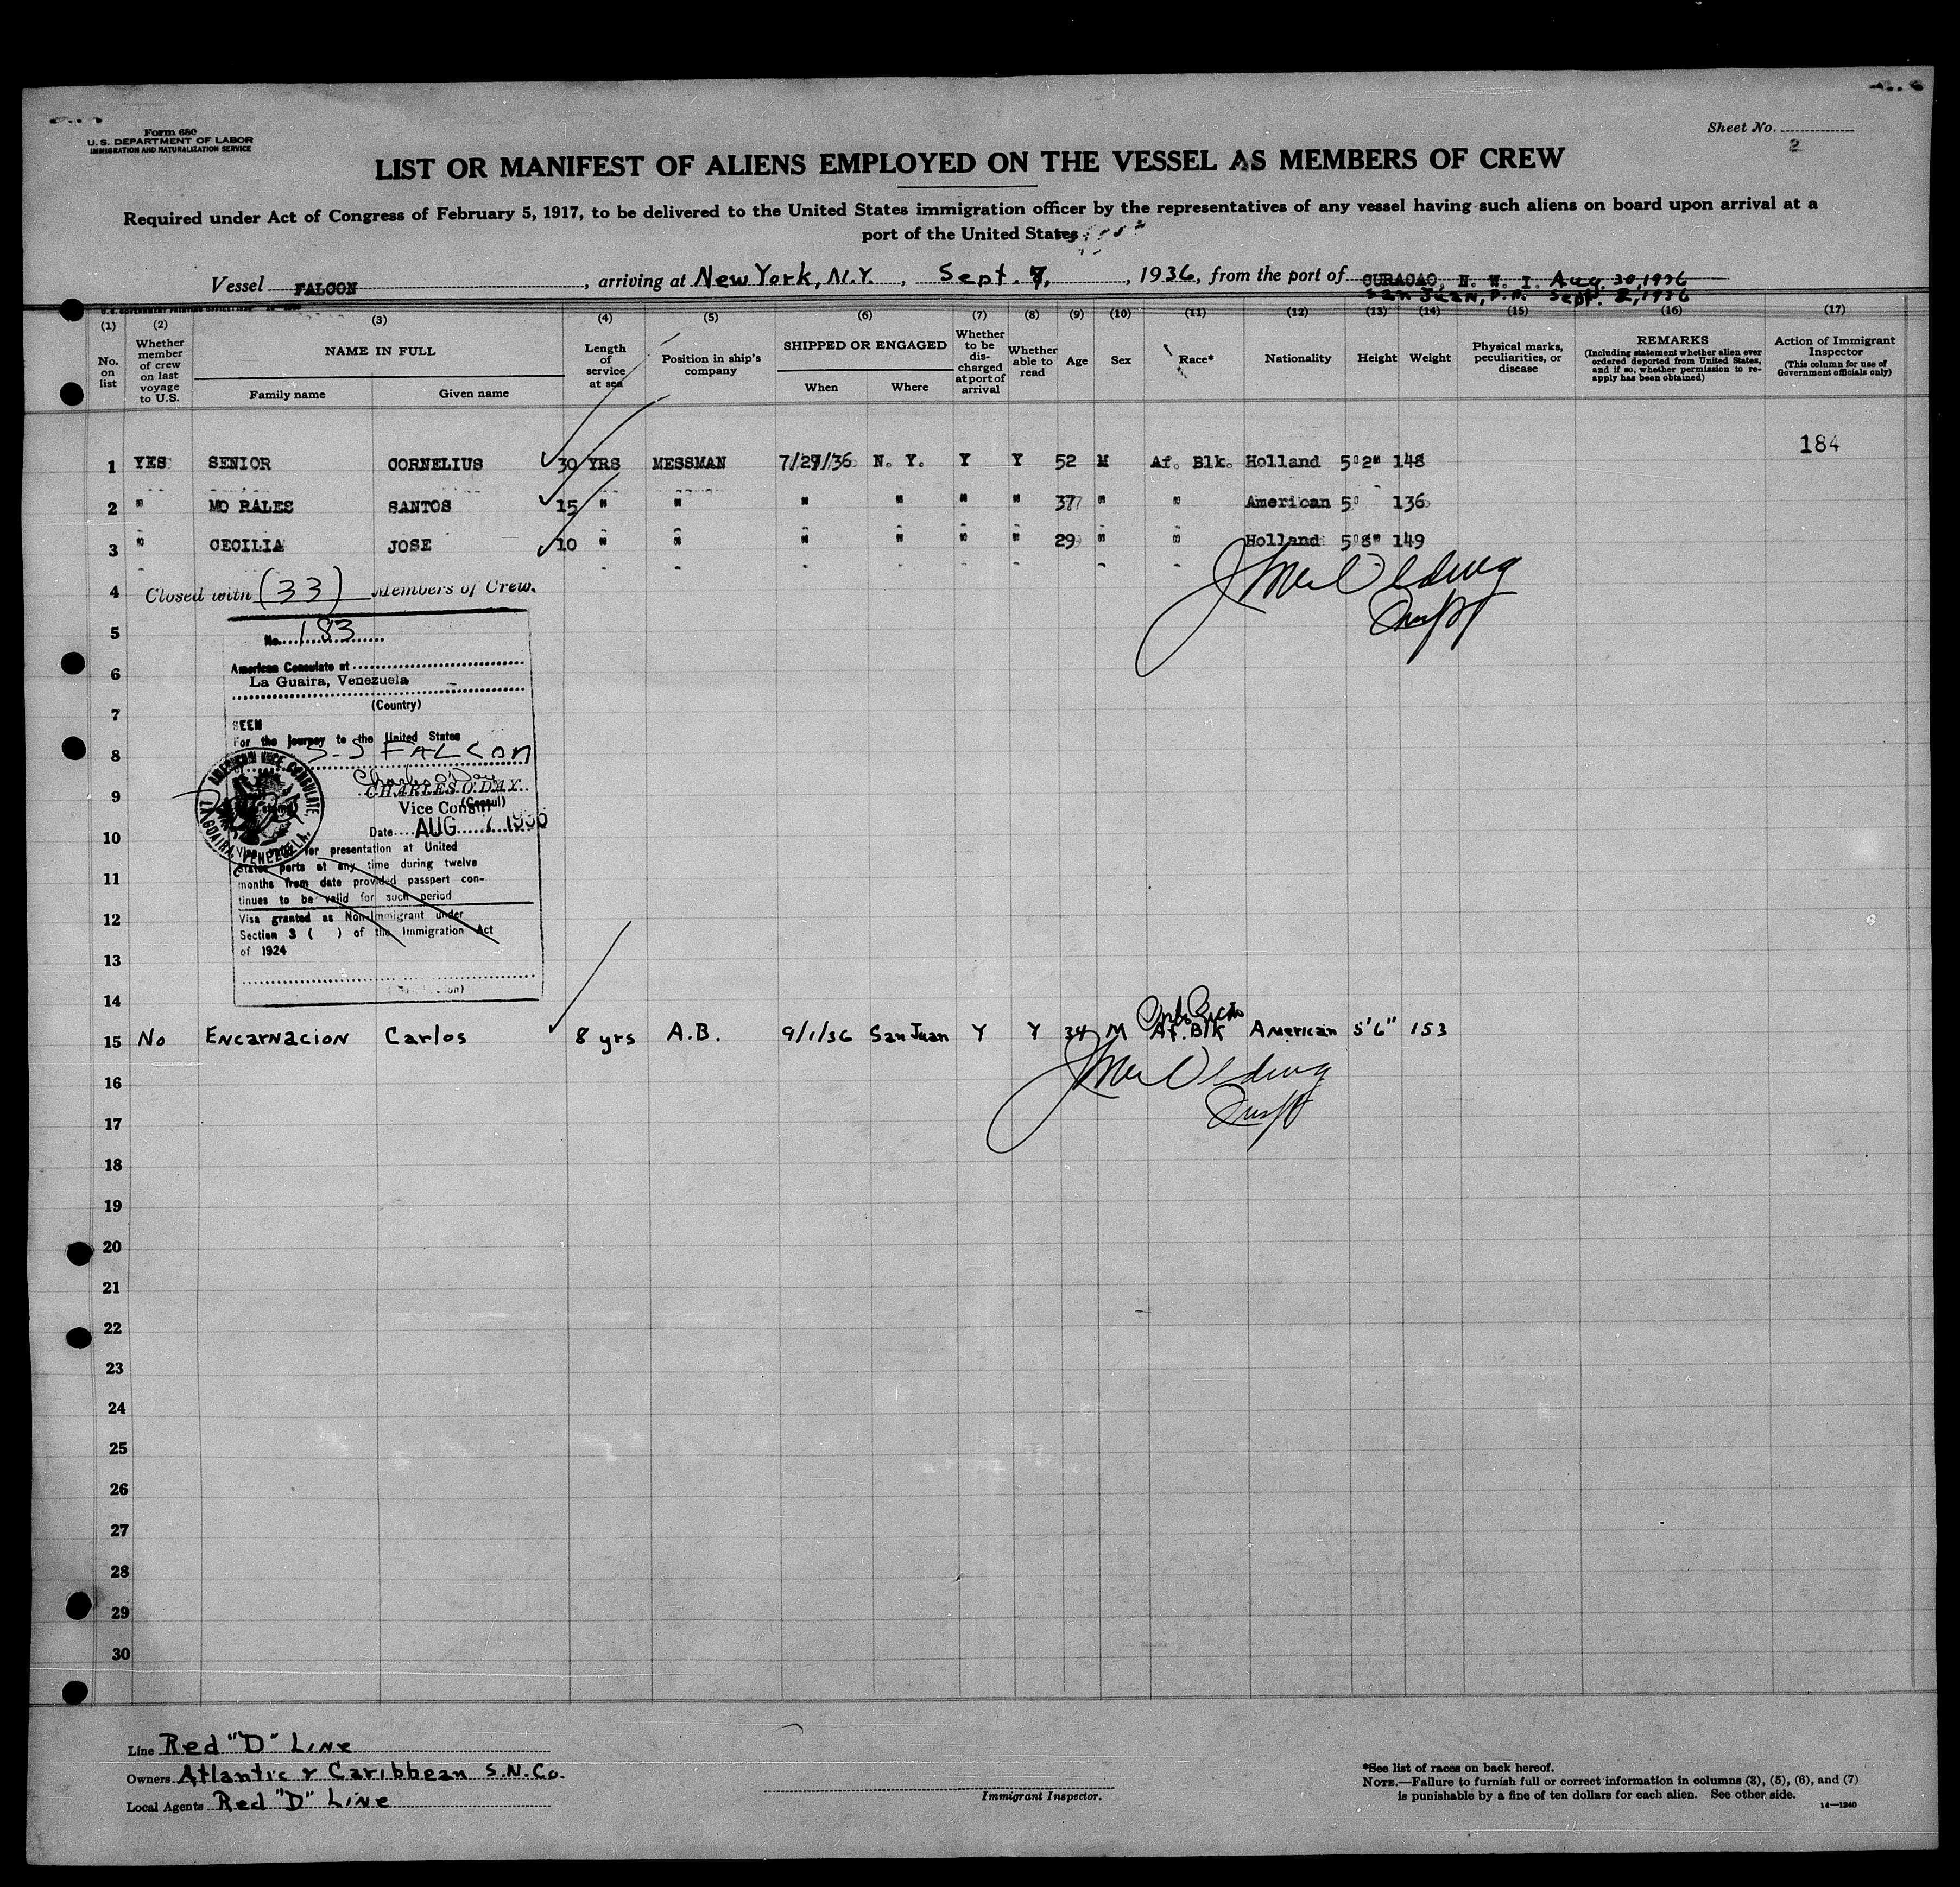 Form 680
U. S. DEPARTMENT OF LABOR
IMMIGRATION AND NATURALIZATION SERVICE
Sheet No.
2
LIST OR MANIFEST OF ALIENS EMPLOYED ON THE VESSEL AS MEMBERS OF CREW
Required under Act of Congress of February 5, 1917, to be delivered to the United States immigration officer by the representatives of any vessel having such aliens on board upon arrival at a
port of the United States
Vessel FALCON, arriving at New York, N.Y., Sept. 7, 1936, from the port of CURACAO, N. W. I. Aug. 30, 1936
San Juan, P.R. Sept. 2, 1936
(1) (2) (3) (4) (5) (6) (7) (8) (9) (10) (11) (12) (13) (14) (15) (16) (17)
No. on list
Whether member of crew on last voyage to U.S.
NAME IN FULL
Family name
Given name
Length of service at sea
Position in ship's company
SHIPPED OR ENGAGED
When
Where
Whether to be discharged at port of arrival
Whether able to read
Age
Sex
Race*
Nationality
Height
Weight
Physical marks, peculiarities, or disease
REMARKS
(Including statement whether alien ever ordered deported from United States, and if so, whether permission to reapply has been obtained)
Action of Immigrant Inspector
(This column for use of Government officials only)
184
1 YES SENIOR CORNELIUS 30 YRS MESSMAN 7/29/36 N. Y. Y Y 52 M Af. Blk. Holland 5'2" 148
2 " MO RALES SANTOS 15 " " " " " " 37 " " American 5' 136
3 " CECILIA JOSE 10 " " " " " " 29 " " Holland 5'8" 149
4 Closed with (33) Members of Crew.
5
No. 183
6
American Consulate at
La Guaira, Venezuela
7
(Country)
SEEN
For the journey to the United States
8
S-S FALCON
Charles O'Day
9
CHARLES O. DAY
Vice Consul
(Consul)
AMERICAN VICE CONSULATE, LA GUAIRA, VENEZUELA.
Date AUG 7 1936
10
for presentation at United
States ports at any time during twelve
11
months from date provided passport con-
tinues to be valid for such period
12
Visa granted as Non-Immigrant under
Section 3 ( ) of the Immigration Act
of 1924
13
14
Porto Rican
15 No Encarnacion Carlos 8 yrs A.B. 9/1/36 San Juan Y Y 34 M Af. Blk American 5'6" 153
16
17
18
19
20
21
22
23
24
25
26
27
28
29
30
Line Red "D" Line
Owners Atlantic & Caribbean S.N.Co.
Local Agents Red "D" Line
Immigrant Inspector.
*See list of races on back hereof.
NOTE.—Failure to furnish full or correct information in columns (3), (5), (6), and (7)
is punishable by a fine of ten dollars for each alien. See other side.
14—1240